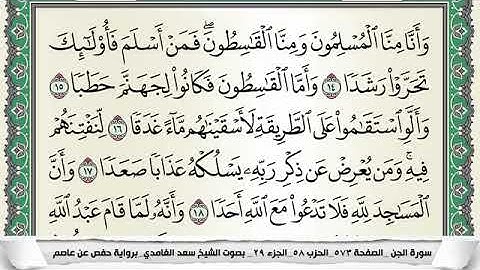 وَأَنَّا مِنَّا ٱلْمُسْلِمُونَ وَمِنَّا ٱلْقَٰسِطُونَ ۖ فَمَنْ أَسْلَمَ فَأُو۟لَٰٓئِكَ
تَحَرَّوْا۟ رَشَدًا ١٤ وَأَمَّا ٱلْقَٰسِطُونَ فَكَانُوا۟ لِجَهَنَّمَ حَطَبًا ١٥
وَأَلَّوِ ٱسْتَقَٰمُوا۟ عَلَى ٱلطَّرِيقَةِ لَأَسْقَيْنَٰهُم مَّآءً غَدَقًا ١٦ لِّنَفْتِنَهُمْ
فِيهِ ۚ وَمَن يُعْرِضْ عَن ذِكْرِ رَبِّهِۦ يَسْلُكْهُ عَذَابًا صَعَدًا ١٧ وَأَنَّ
ٱلْمَسَٰجِدَ لِلَّهِ فَلَا تَدْعُوا۟ مَعَ ٱللَّهِ أَحَدًا ١٨ وَأَنَّهُۥ لَمَّا قَامَ عَبْدُ ٱللَّهِ
سورة الجن _ الصفحة ٥٧٣ _ الحزب ٥٨ _ الجزء ٢٩ _ بصوت الشيخ سعد الغامدي _ برواية حفص عن عاصم